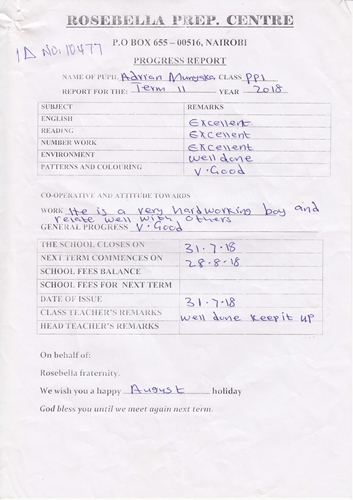 ROSEBELLA PREP. CENTRE
P.O BOX 655 – 00516, NAIROBI
ID NO. 10477
PROGRESS REPORT
NAME OF PUPIL Adrian CLASS PP1
REPORT FOR THE: Term 11 YEAR 2018
SUBJECT REMARKS
ENGLISH Excellent
READING Excellent
NUMBER WORK Excellent
ENVIRONMENT well done
PATTERNS AND COLOURING V.Good
CO-OPERATIVE AND ATTITUDE TOWARDS
WORK He is a very hardworking boy and
relate well with others
GENERAL PROGRESS V.Good
THE SCHOOL CLOSES ON 31.7.18
NEXT TERM COMMENCES ON 28.8.18
SCHOOL FEES BALANCE
SCHOOL FEES FOR NEXT TERM
DATE OF ISSUE 31.7.18
CLASS TEACHER'S REMARKS well done keep it up
HEAD TEACHER'S REMARKS
On behalf of:
Rosebella fraternity.
We wish you a happy August holiday
God bless you until we meet again next term.